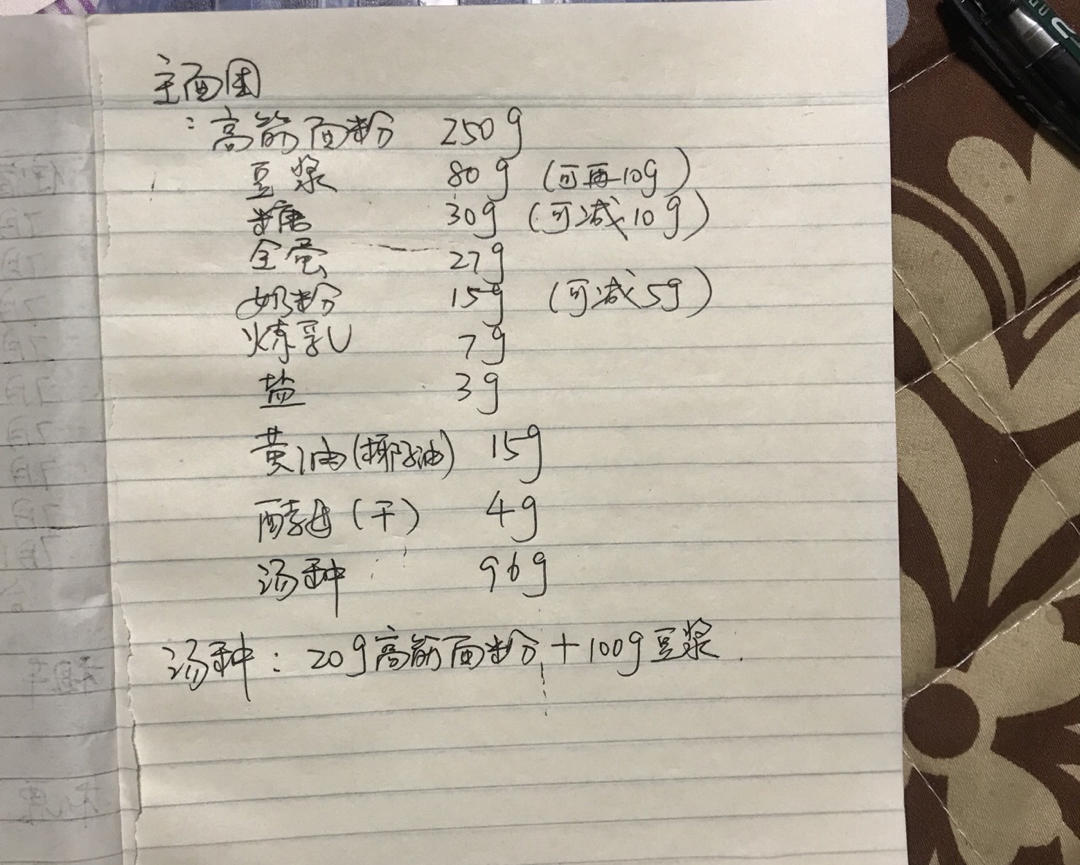 主面团
：高筋面粉 250g
豆浆 80g (可再10g)
糖 30g (可减10g)
全蛋 27g
奶粉 15g (可减5g)
炼乳 7g
盐 3g
黄油(椰子油) 15g
酵母(干) 4g
汤种 96g
汤种：20g高筋面粉+100g豆浆.